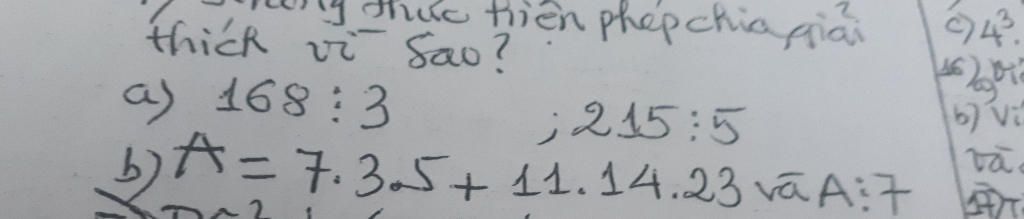 không thực hiện phép chia, giải
thích vì sao?
a) 168 ⋮ 3 ; 215 ⋮ 5
b) A = 7.3.5 + 11.14.23 và A ⋮ 7
c) 4³.
16)
b) Vi
và
17)